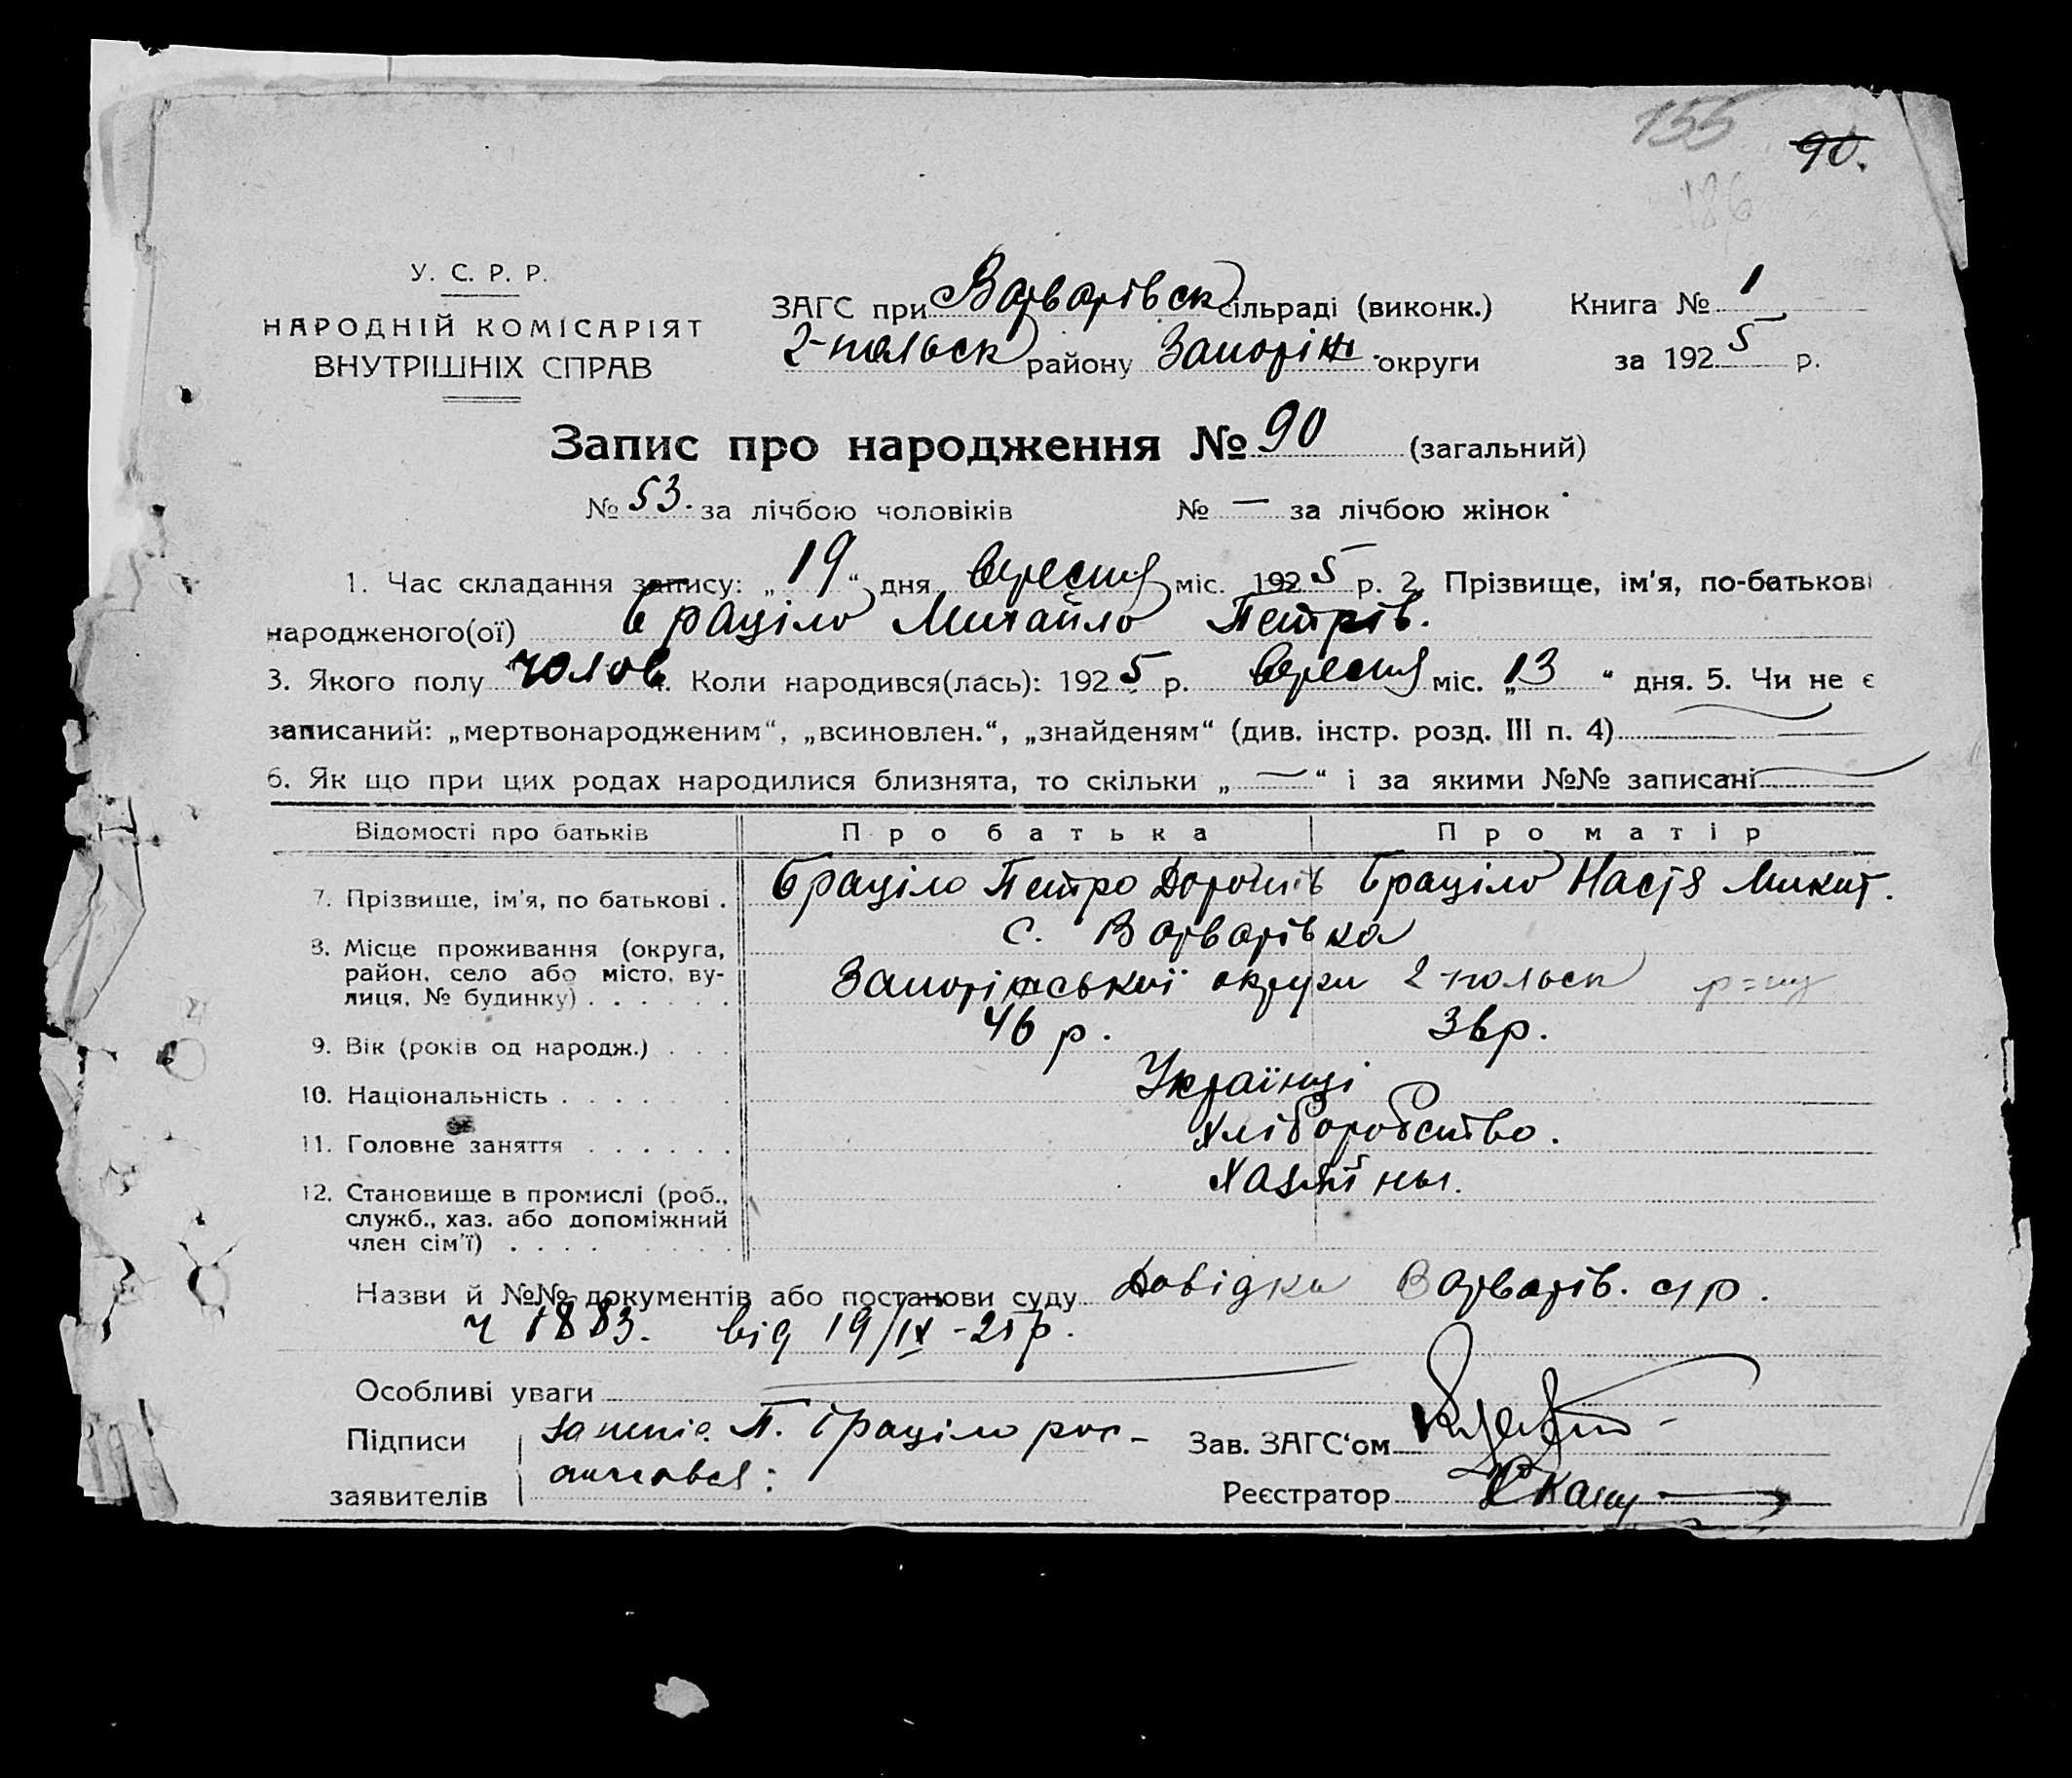 155
90.
186
У. С. Р. Р.
НАРОДНІЙ КОМІСАРІЯТ
ВНУТРІШНІХ СПРАВ
ЗАГС при Варварівск сільраді (виконк.)
2-польск району Запоріж. округи
Книга № 1
за 1925 р.
Запис про народження № 90 (загальний)
№ 53. за лічбою чоловіків № — за лічбою жінок
1. Час складання запису: „19“ дня вересня міс. 1925 р. 2. Прізвище, ім'я, по-батькові
народженого(ої) Браціло Михайло Петрів.
3. Якого полу чолов 4. Коли народився(лась): 1925 р. вересня міс. „13“ дня. 5. Чи не є
записаний: „мертвонародженим“, „всиновлен.“, „знайденям“ (див. інстр. розд. III п. 4) —
6. Як що при цих родах народилися близнята, то скільки „—“ і за якими №№ записані —
Відомості про батьків Про батька Про матір
7. Прізвище, ім'я, по батькові . Браціло Петро Дорошів Браціло Настя Микит.
8. Місце проживання (округа, район, село або місто, вулиця, № будинку) . . . . . . с. Варварівка
Запоріжської округи 2-польск р-ну
9. Вік (років од народж.) . . . 46 р. 36р.
10. Національність . . . . . . Українці
11. Головне заняття . . . . . . Хліборобство.
12. Становище в промислі (роб., служб., хаз. або допоміжний член сім'ї) . . . . Хазяїни.
Назви й №№ документів або постанови суду Довідка Варварів. с/р.
ч 1883. від 19/IX-25р.
Особливі уваги
Підписи заявителів
за непис. П. Браціло рос-
Зав. ЗАГС‘ом
Реєстратор